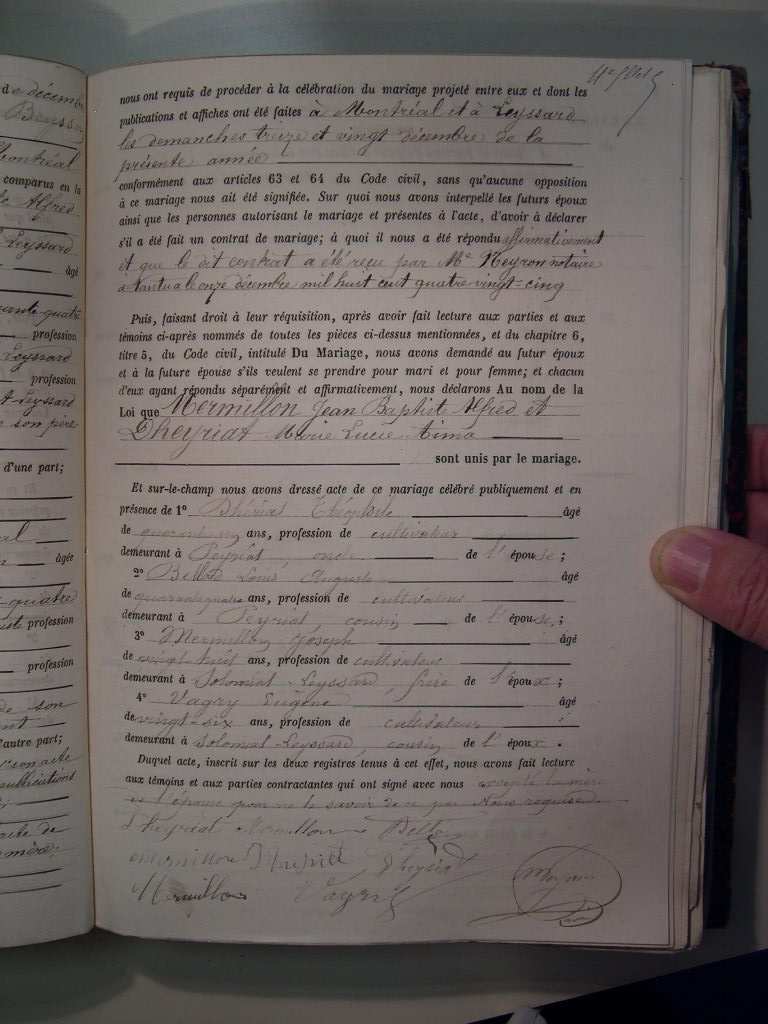 d
e décembre
Montréal
comparus en la
Alfred
Leyssard
âgé
quatre
profession
Leyssard
profession
et Leyssard
son père
d'une part;
âgée
quatre
profession
profession
de son
d'autre part;
l'an acte
publications
acte de
mère;
nous ont requis de procéder à la célébration du mariage projeté entre eux et dont les
publications et affiches ont été faites à Montréal et à Leyssard
les demanches treize et vingt décembre de la
présente année
conformément aux articles 63 et 64 du Code civil, sans qu'aucune opposition
à ce mariage nous ait été signifiée. Sur quoi nous avons interpellé les futurs époux
ainsi que les personnes autorisant le mariage et présentes à l'acte, d'avoir à déclarer
s'il a été fait un contrat de mariage; à quoi il nous a été répondu affirmativement
et que le dit contrat a été reçu par Me Neyron notaire
à Nantua le onze décembre mil huit cent quatre vingt-cinq
Puis, faisant droit à leur réquisition, après avoir fait lecture aux parties et aux
témoins ci-après nommés de toutes les pièces ci-dessus mentionnées, et du chapitre 6,
titre 5, du Code civil, intitulé Du Mariage, nous avons demandé au futur époux
et à la future épouse s'ils veulent se prendre pour mari et pour femme; et chacun
d'eux ayant répondu séparément et affirmativement, nous déclarons Au nom de la
Loi que Mermillon Jean Baptiste Alfred et
Dheyriat Marie Lucie
sont unis par le mariage.
Et sur-le-champ nous avons dressé acte de ce mariage célébré publiquement et en
présence de 1° Théophile âgé
de ans, profession de cultivateur
demeurant à Peyriat, oncle de l'épouse;
2° Louis Auguste âgé
de ans, profession de cultivateur
demeurant à Peyriat, cousin de l'épouse;
3° Mermillon Joseph âgé
de vingt-huit ans, profession de cultivateur
demeurant à Solomiat-Leyssard, frère de l'époux;
4° Vagry Eugène âgé
de vingt-six ans, profession de cultivateur
demeurant à Solomiat-Leyssard, cousin de l'époux.
Duquel acte, inscrit sur les deux registres tenus à cet effet, nous avons fait lecture
aux témoins et aux parties contractantes qui ont signé avec nous excepté la mère
de l'épouse pour ne le savoir de ce par Nous requise
Dheyriat Mermillon
Mermillon Dheyriat
Mermillon